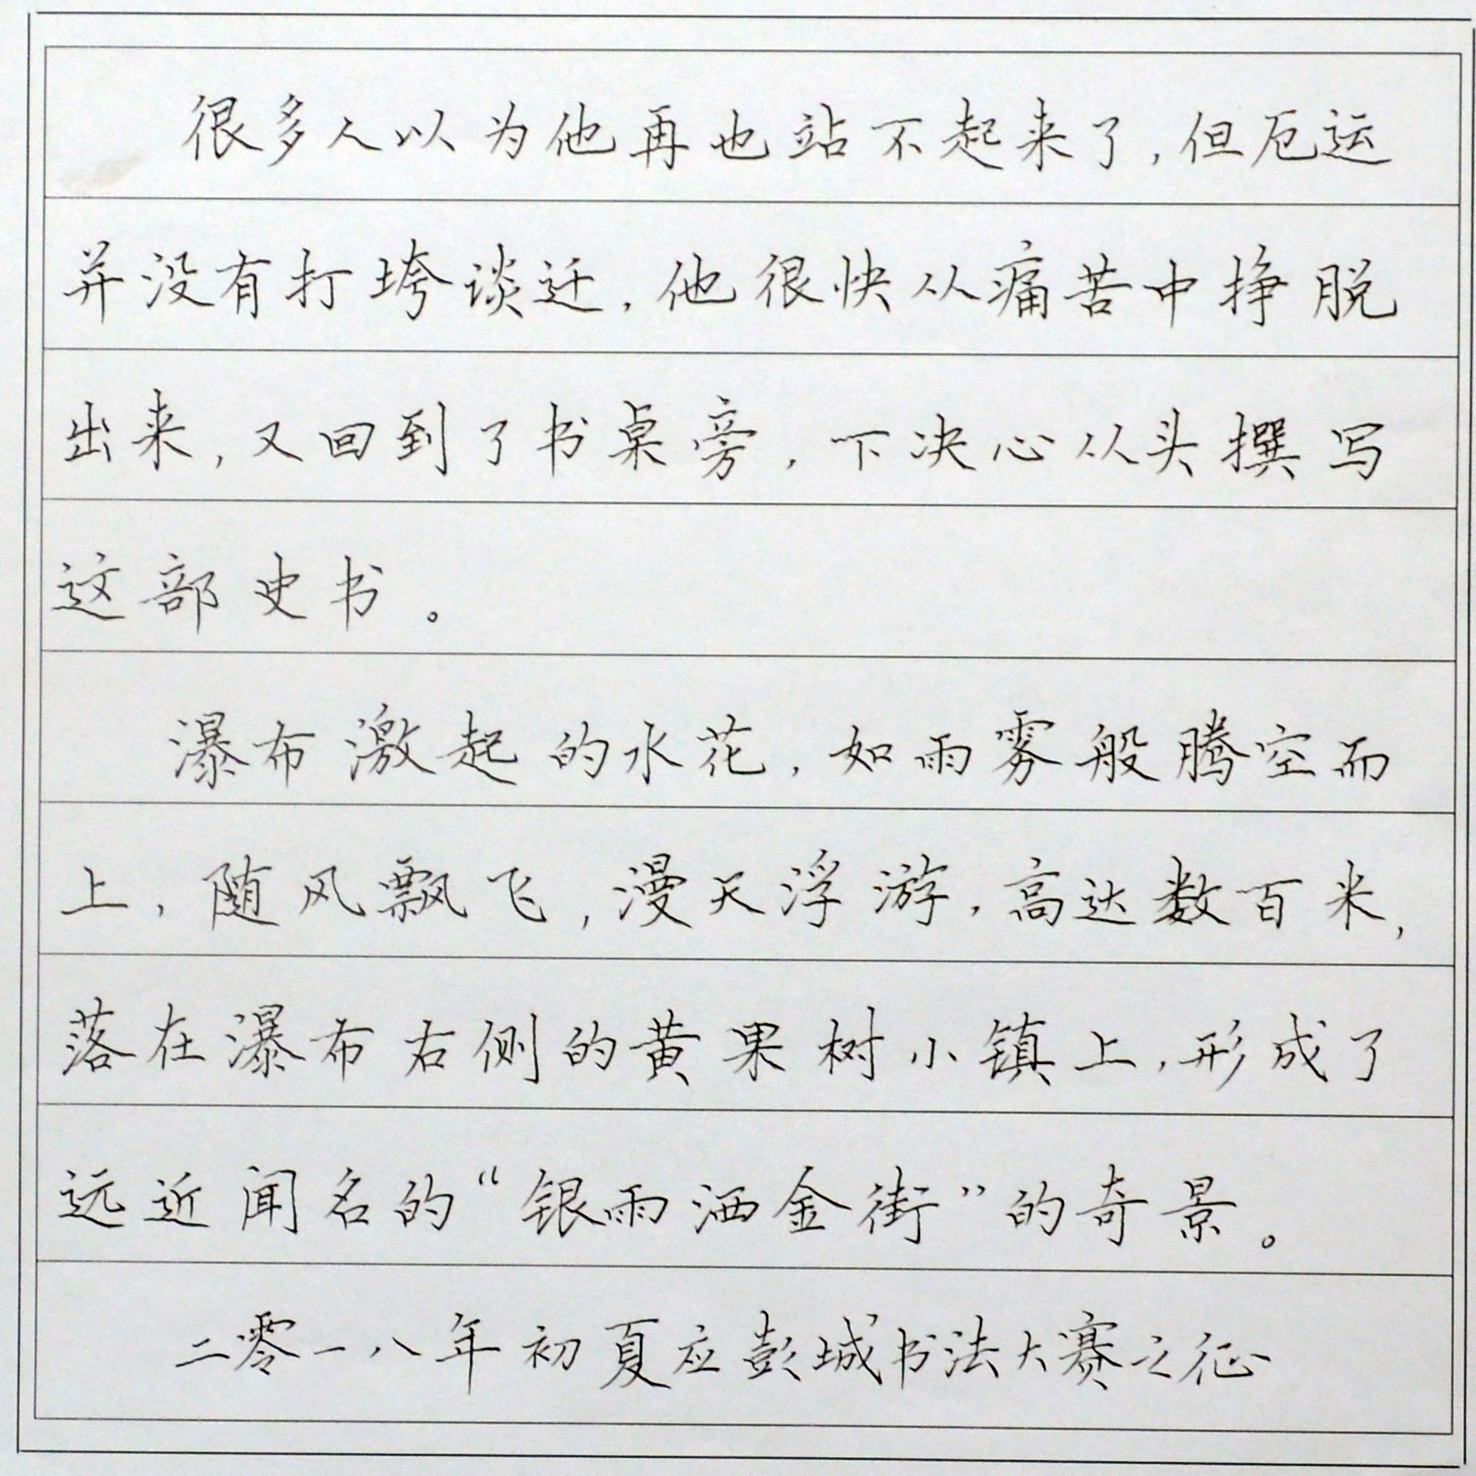 很多人以为他再也站不起来了，但厄运
并没有打垮谈迁，他很快从痛苦中挣脱
出来，又回到了书桌旁，下决心从头撰写
这部史书。
瀑布激起的水花，如雨雾般腾空而
上，随风飘飞，漫天浮游，高达数百米，
落在瀑布右侧的黄果树小镇上，形成了
远近闻名的“银雨洒金街”的奇景。
二零一八年初夏应彭城书法大赛之征